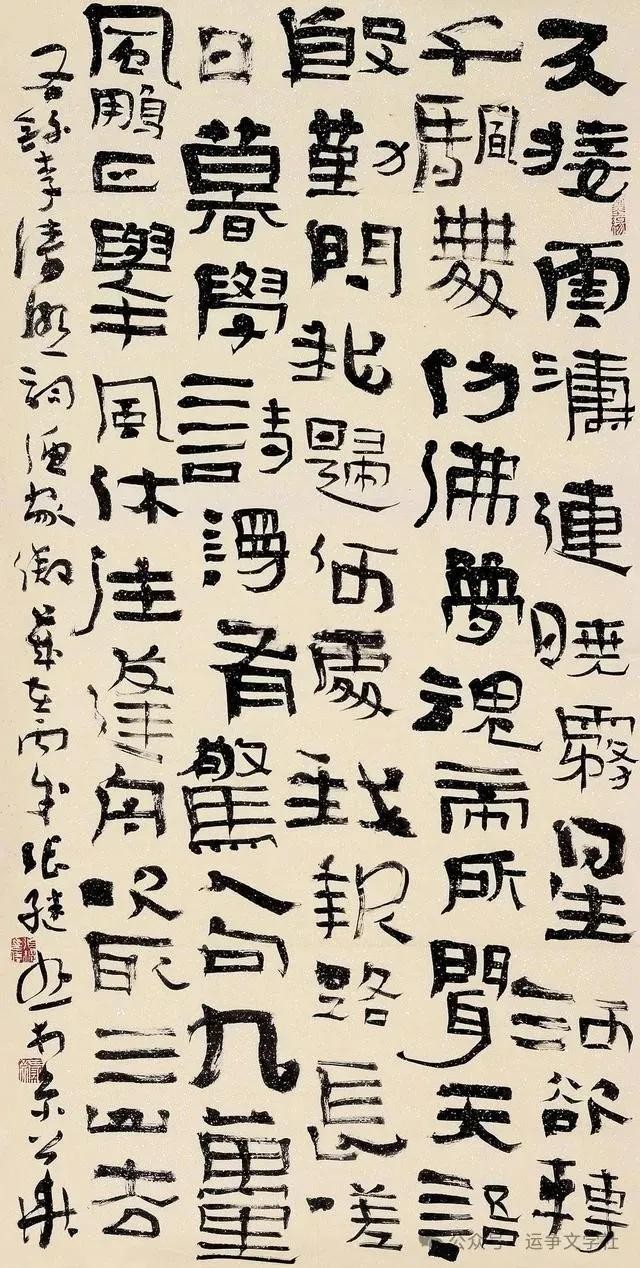 天接雲濤連曉霧星河欲轉
千颿舞仿佛夢魂帝所聞天語
殷勤問我歸何處我報路長嗟
日暮學詩謾有驚人句九萬里
風鵬正舉風休住蓬舟吹取三山去
右錄李清照詞漁家傲歲在丙午張繼於京
公众号 · 运争文学社